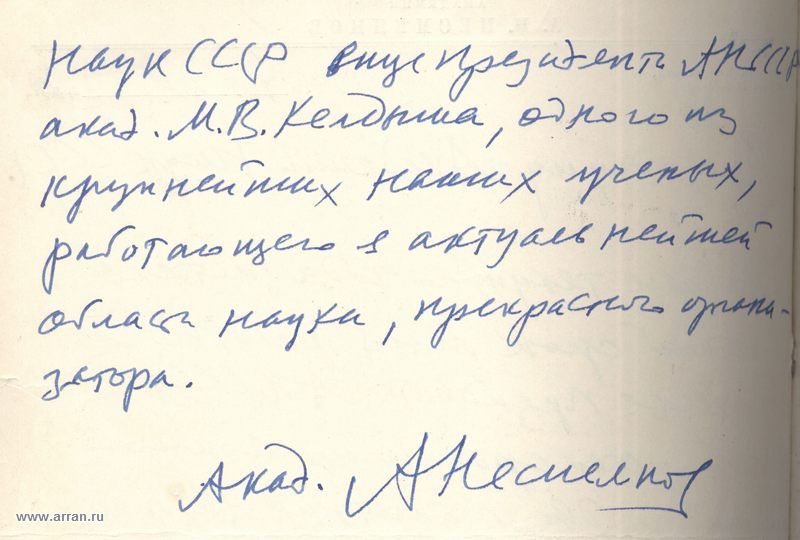 А. Н. НЕСМЕЯНОВ
Наук СССР вице президента АН СССР
акад. М.В. Келдыша, одного из
крупнейших наших ученых,
работающего в актуальнейшей
области науки, прекрасного органи-
затора.
Акад. АНесмеянов
www.arran.ru